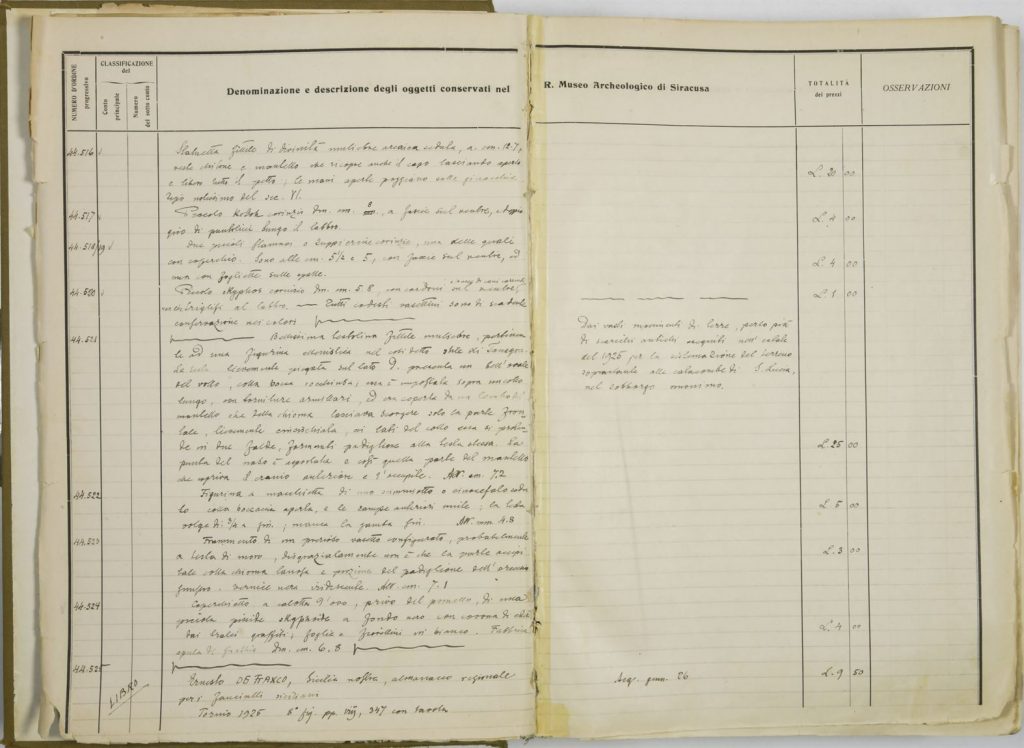 NUMERO D'ORDINE
progressivo
CLASSIFICAZIONE
del
Conto
principale
Numero
del sotto conto
Denominazione e descrizione degli oggetti conservati nel
R. Museo Archeologico di Siracusa
TOTALITÀ
dei prezzi
OSSERVAZIONI
44.516
Statuetta fittile di divinità muliebre arcaica seduta, a. cm. 12.7,
veste chitone e mantello che ricopre anche il capo lasciando aperto
e libero tutto il petto; le mani aperte poggiano sulle ginocchia.
Tipo notissimo del sec. VI.
L. 20 00
44.517
Piccolo Kothon corinzio dm. cm. 8, a fascie sul ventre, e doppio
giro di puntolini lungo il labbro.
L. 4 00
44.518/19
Due piccoli stamnoi o zuppierine corinzie, una delle quali
con coperchio. Sono alte cm. 5 1/2 e 5, con fascie sul ventre, ed
una con foglietto sulle spalle.
L. 4 00
44.520
Piccolo skyphos corinzio dm. cm. 5.8, con cordoni sul ventre,
al labbro. — Tutti codesti vasettini sono di scadente
conservazione nei colori
L. 1 00
44.521
Bellissima testolina fittile muliebre, pertinen
te ad una figurina ellenistica nel così detto stile di Tanagra.
La testa lievemente piegata sul lato D. presenta un bell'ovale
del volto, colla bocca socchiusa; essa è impostata sopra un collo
lungo, con torniture armillari, ed era coperta da un
mantello che della chioma lasciava scorgere solo la parte fron
tale, lievemente, ai lati del collo essa si proten
de in due falde, formanti padiglione alla testa stessa. La
punta del naso è asportata e così quella parte del mantello
che copriva il cranio anteriore e l'occipite. Alt. cm. 7.2
Dai vasti movimenti di terra, perlo più
di scarichi antichi eseguiti nell'estate
del 1925 per la sistemazione del terreno
soprastante alle catacombe di S. Lucia,
nel sobborgo omonimo.
L. 25 00
44.522
Figurina a macchietta di uno scimmiotto o cinocefalo sedu
to colla boccaccia aperta, e le zampe anteriori unite; la testa
volge di 3/4 a sin.; manca la gamba sin. Alt. cm. 4.8
L. 5 00
44.523
Frammento di un piccolo vasetto configurato, probabilmente
a testa di moro, disgraziatamente non è che la parte occipi
tale colla chioma lanosa e porzione del padiglione dell'orecchio
sinistro. Vernice nera iridescente. Alt. cm. 7.1
L. 3 00
44.524
Coperchietto a calotta d'ovo, privo del pomello, di una
piccola pisside skyphoide a fondo nero con corona di edera
dai tralci graffiti; foglie e fiorellini in bianco. Fabbrica
apula di Gnathia dm. cm. 6.8
L. 4 00
44.525
LIBRO
Ernesto DE FRANCO, Sicilia nostra, almanacco regionale
per i fanciulli siciliani
Torino 1925 8° fig. pp. VIII, 247 con tavola
Acq. genn. 26
L. 9 50